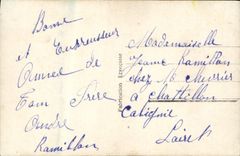 Bonne
et Heureuse
Année de
Ton Frère
André
Ramillon
Fabrication Française
Mademoiselle
Jeanne Ramillon
chez Mr
à Chatillon
Loire